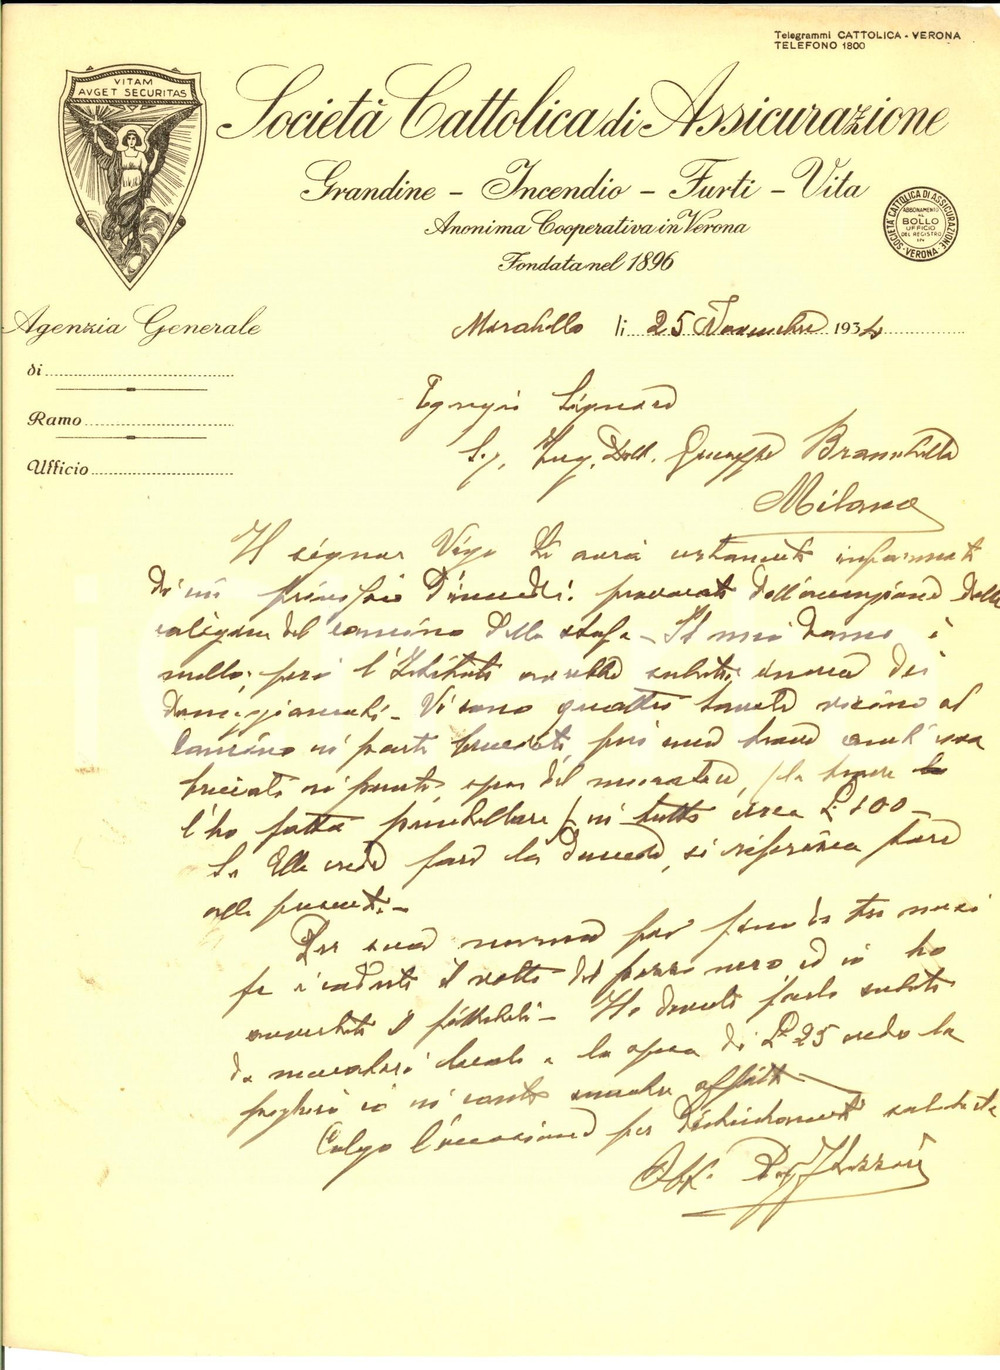 Telegrammi CATTOLICA - VERONA
TELEFONO 1800
VITAM
AVGET SECURITAS
Società Cattolica di Assicurazione
Grandine - Incendio - Furti - Vita
Anonima Cooperativa in Verona
Fondata nel 1896
SOCIETÀ CATTOLICA DI ASSICURAZIONE - VERONA -
ABBONAMENTO
AL
BOLLO
UFFICIO
DEL REGISTRO
IN
Agenzia Generale
di
Ramo
Ufficio
li 25 Novembre 1934
Egregio Signore
Ing. Dott. Giuseppe Brambilla
Milano
Il signor Vigo Le avrà certamente informato
di un principio d'incendio provocato dall'accensione della
caligine del camino della stufa - Il mio danno è
nullo; però l'Istituto avrebbe subito dei
danneggiamenti - Vi sono quattro tavole vicino al
camino in parte bruciate poi una trave anch'essa
bruciata in parte, opera del muratore, (la trave la
l'ho fatta puntellare) in tutto circa L. 100 -
Se Ella crede fare la denuncia, si riferisca pure
alla presente. -
Per sua norma poi fino da tre mesi
fa è caduto il volto del pozzo nero ed io ho
avvertito - Ho dovuto farlo subito
da muratori locali e la spesa di L. 25 credo la
pagherò io in conto affitto -
Colgo l'occasione per distintamente salutarla
Obb.